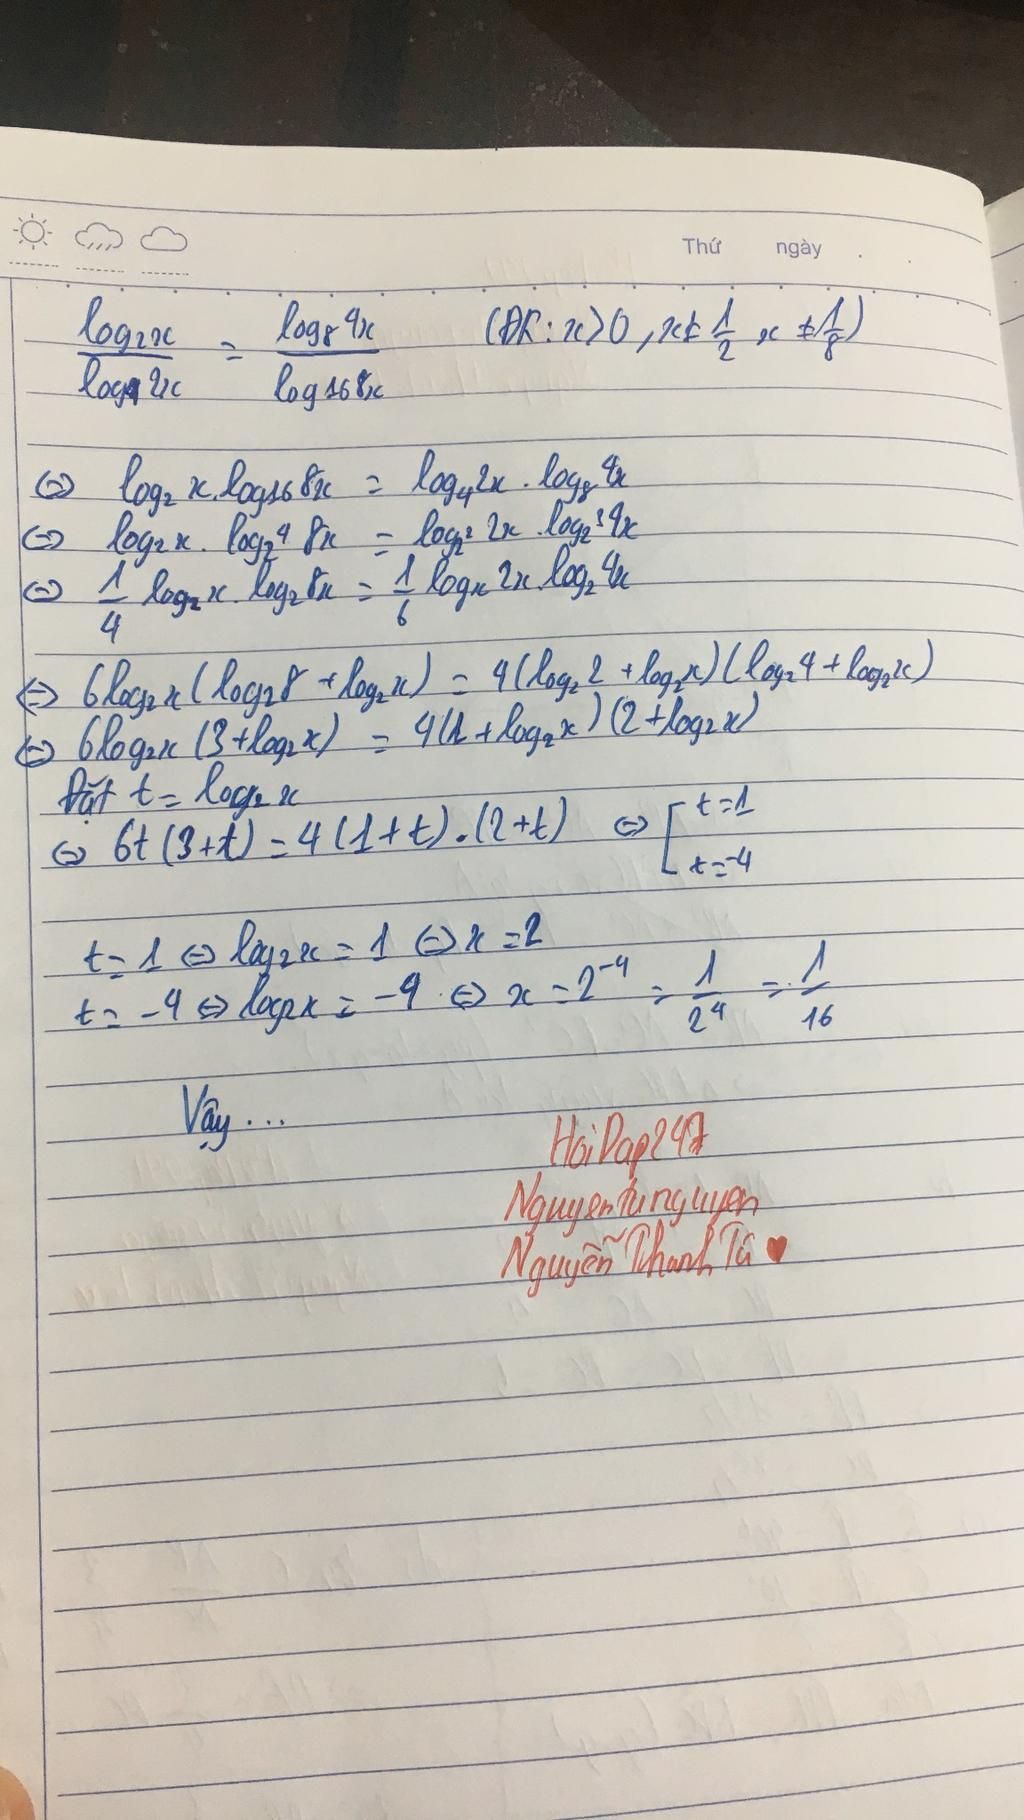 Thứ ngày
log₂x / log₄2x = log₈4x / log₁₆8x (ĐK: x>0, x≠1/2 x≠1/8)
⇔ log₂x.log₁₆8x = log₄2x.log₈4x
⇔ log₂x.log₂⁴8x = log₂²2x.log₂³4x
⇔ 1/4 log₂x.log₂8x = 1/6 logₓ2x.log₂4x
⇔ 6log₂x(log₂8+log₂x) = 4(log₂2+log₂x)(log₂4+log₂x)
⇔ 6log₂x(3+log₂x) = 4(1+log₂x)(2+log₂x)
Đặt t = log₂x
⇔ 6t(3+t) = 4(1+t).(2+t) ⇔ [ t=1
t=-4
t=1 ⇔ log₂x = 1 ⇔ x=2
t=-4 ⇔ log₂x = -4 ⇔ x=2⁻⁴ = 1/2⁴ = 1/16
Vậy...
HoiDap247
Nguyentunguyen
Nguyễn Thanh Tú ♥